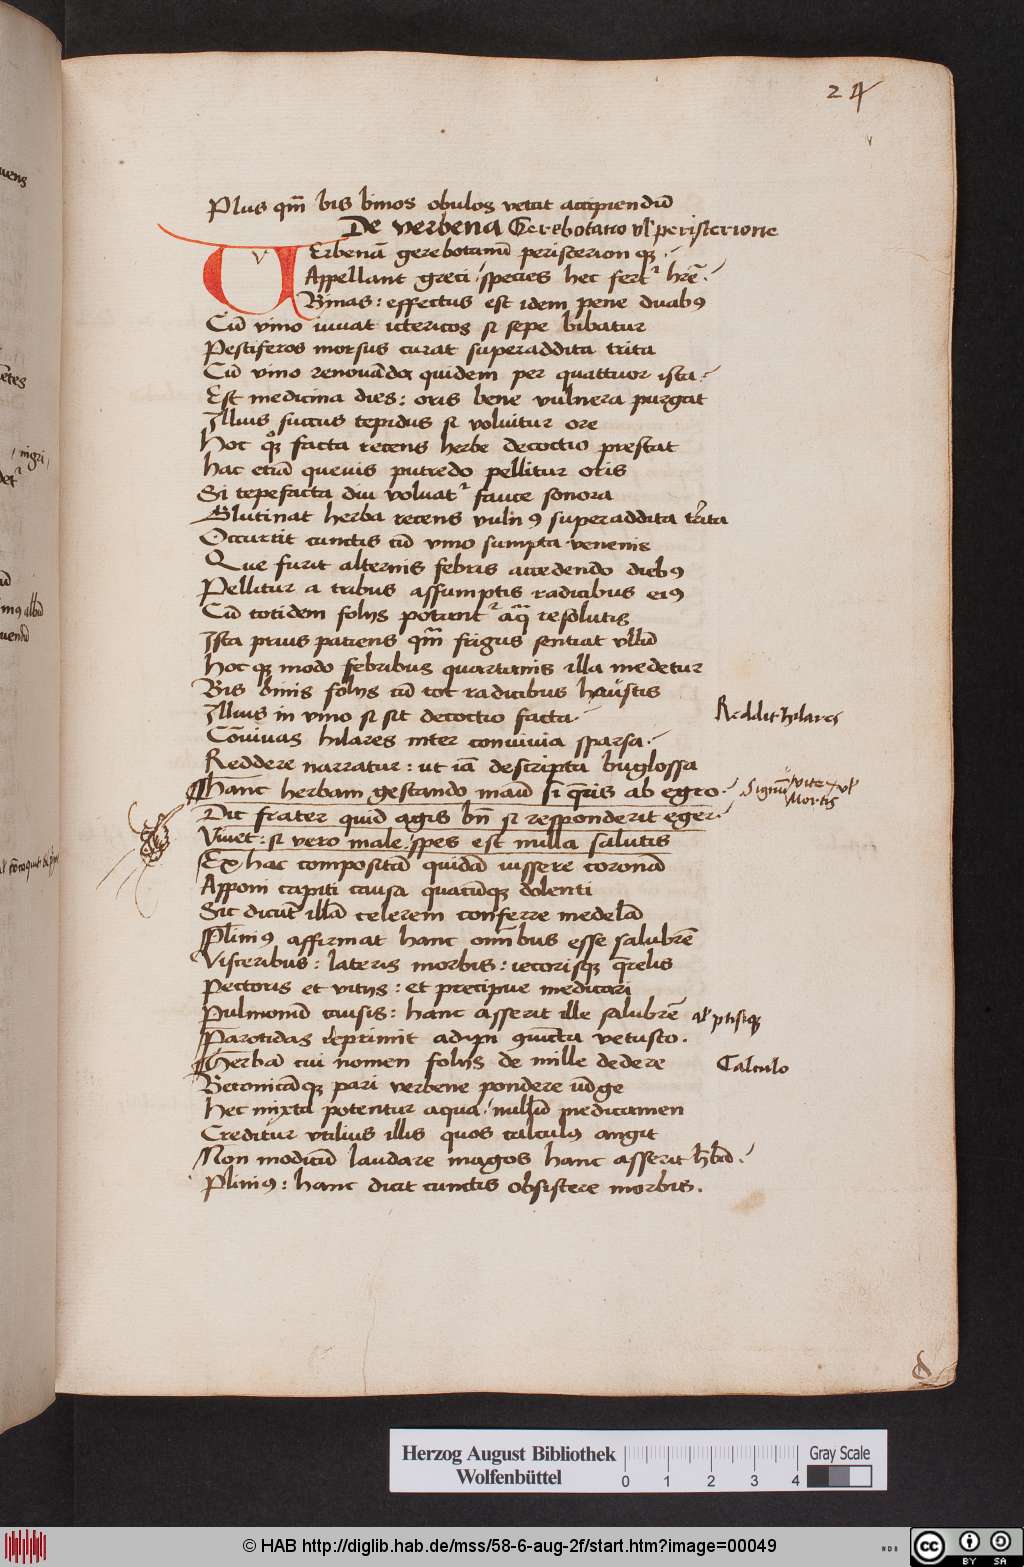 24
Plus qm̄ bis binos obulos vetat accipiendū
De verbena Gerebotano vl' peristerione
VErbenā gerebotanū peristerion qꝫ
Appellant greci / species hec fert' hr̄e
Binas : effectus est idem pene duabꝰ
Cū vino iuuat ictericos si sepe bibatur
Pestiferos morsus curat superaddita trita
Cū vino renouādoꝝ quidem per quattuor ista
Est medicina dies : oris bene vulnera purgat
Illius succus tepidus si voluitur ore
Hoc qꝫ facta recens herbe decoctio prestat
Hac etiā queuis putredo pellitur oris
Si tepefacta diu voluat' fauce sonora
Glutinat herba recens vulnꝰ superaddita trita
Occurrit cunctis cū vino sumpta venenis
Que furit alternis febris accedendo diebꝰ
Pellitur a tribus assumptis radicibus eiꝰ
Cū totidem folijs potent' aq̄ resolutis
Ista prius patiens qm̄ frigus sentiat vllū
Hoc qꝫ modo febribus quartanis illa medetur
Bis binis folijs cū tot radicibus haustis
Illius in vino si sit decoctio facta
Reddit hilares
Cōuiuas hilares inter conuiuia sparsa
Reddere narratur : ut iā descripta buglossa
Hanc herbam gestando manū si q̄ris ab egro
Signū vite vl' Mortis
Dic frater quid agis bn̄ si responderit eger
Viuet : si vero male / spes est nulla salutis
Ex hac compositā quidā iussere coronā
Apponi capiti causa quacūqꝫ dolenti
Sic dicūt illā celerem conferre medelā
Pliniꝰ affirmat hanc omībus esse salubrē
Visceribus : lateris morbis : iecorisqꝫ q̄relis
Pectoris et vitijs : et precipue medicari
Pulmonū causis : hanc asserit ille salubrē al' ptisiqꝫ
Parotidas reprimit adipi ꝯiuncta vetusto.
Herbā cui nomen folijs de mille dedere
Calculo
Betonicāqꝫ pari verbene pondere iūge
Hec mixta potentur aqua / nullū medicamen
Creditur vtilius illis quos calculꝰ angit
Non modicū laudare magos hanc asserit h̄bā
Pliniꝰ : hanc dicit cunctis obsistere morbis.
Herzog August Bibliothek
Wolfenbüttel
0 1 2 3 4
Gray Scale
© HAB http://diglib.hab.de/mss/58-6-aug-2f/start.htm?image=00049
cc BY SA